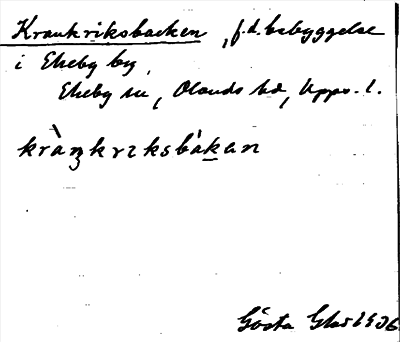 Krankriksbacken, f.d. bebyggelse
i Ekeby by,
Ekeby sn, Olands hd, Upps. l.
kràŋkrıksbákan
Gösta 1936